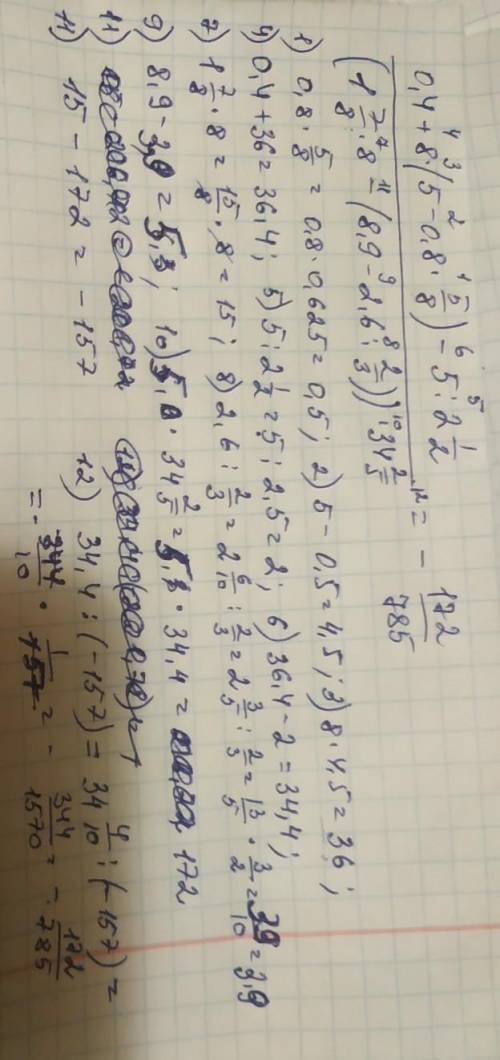 0,4 + 8 · (5 - 0,8 · 5/8) - 5 : 2 1/2
(1 7/8 · 8 - (8,9 - 2,6 : 2/3)) · 34 2/5 = - 172/785
1) 0,8 · 5/8 = 0,8 · 0,625 = 0,5; 2) 5 - 0,5 = 4,5; 3) 8 · 4,5 = 36;
4) 0,4 + 36 = 36,4; 5) 5 : 2 1/2 = 5 : 2,5 = 2; 6) 36,4 - 2 = 34,4;
7) 1 7/8 · 8 = 15/8 · 8 = 15; 8) 2,6 : 2/3 = 2 6/10 : 2/3 = 2 3/5 : 2/3 = 13/5 · 3/2 = 39/10 = 3,9
9) 8,9 - 3,9 = 5; 10) 5 · 34 2/5 = 5 · 34,4 = 172
11)
11) 15 - 172 = -157
12) 34,4 : (-157) = 34 4/10 : (-157) =
= - 344/10 · 1/157 = - 344/1570 = - 172/785